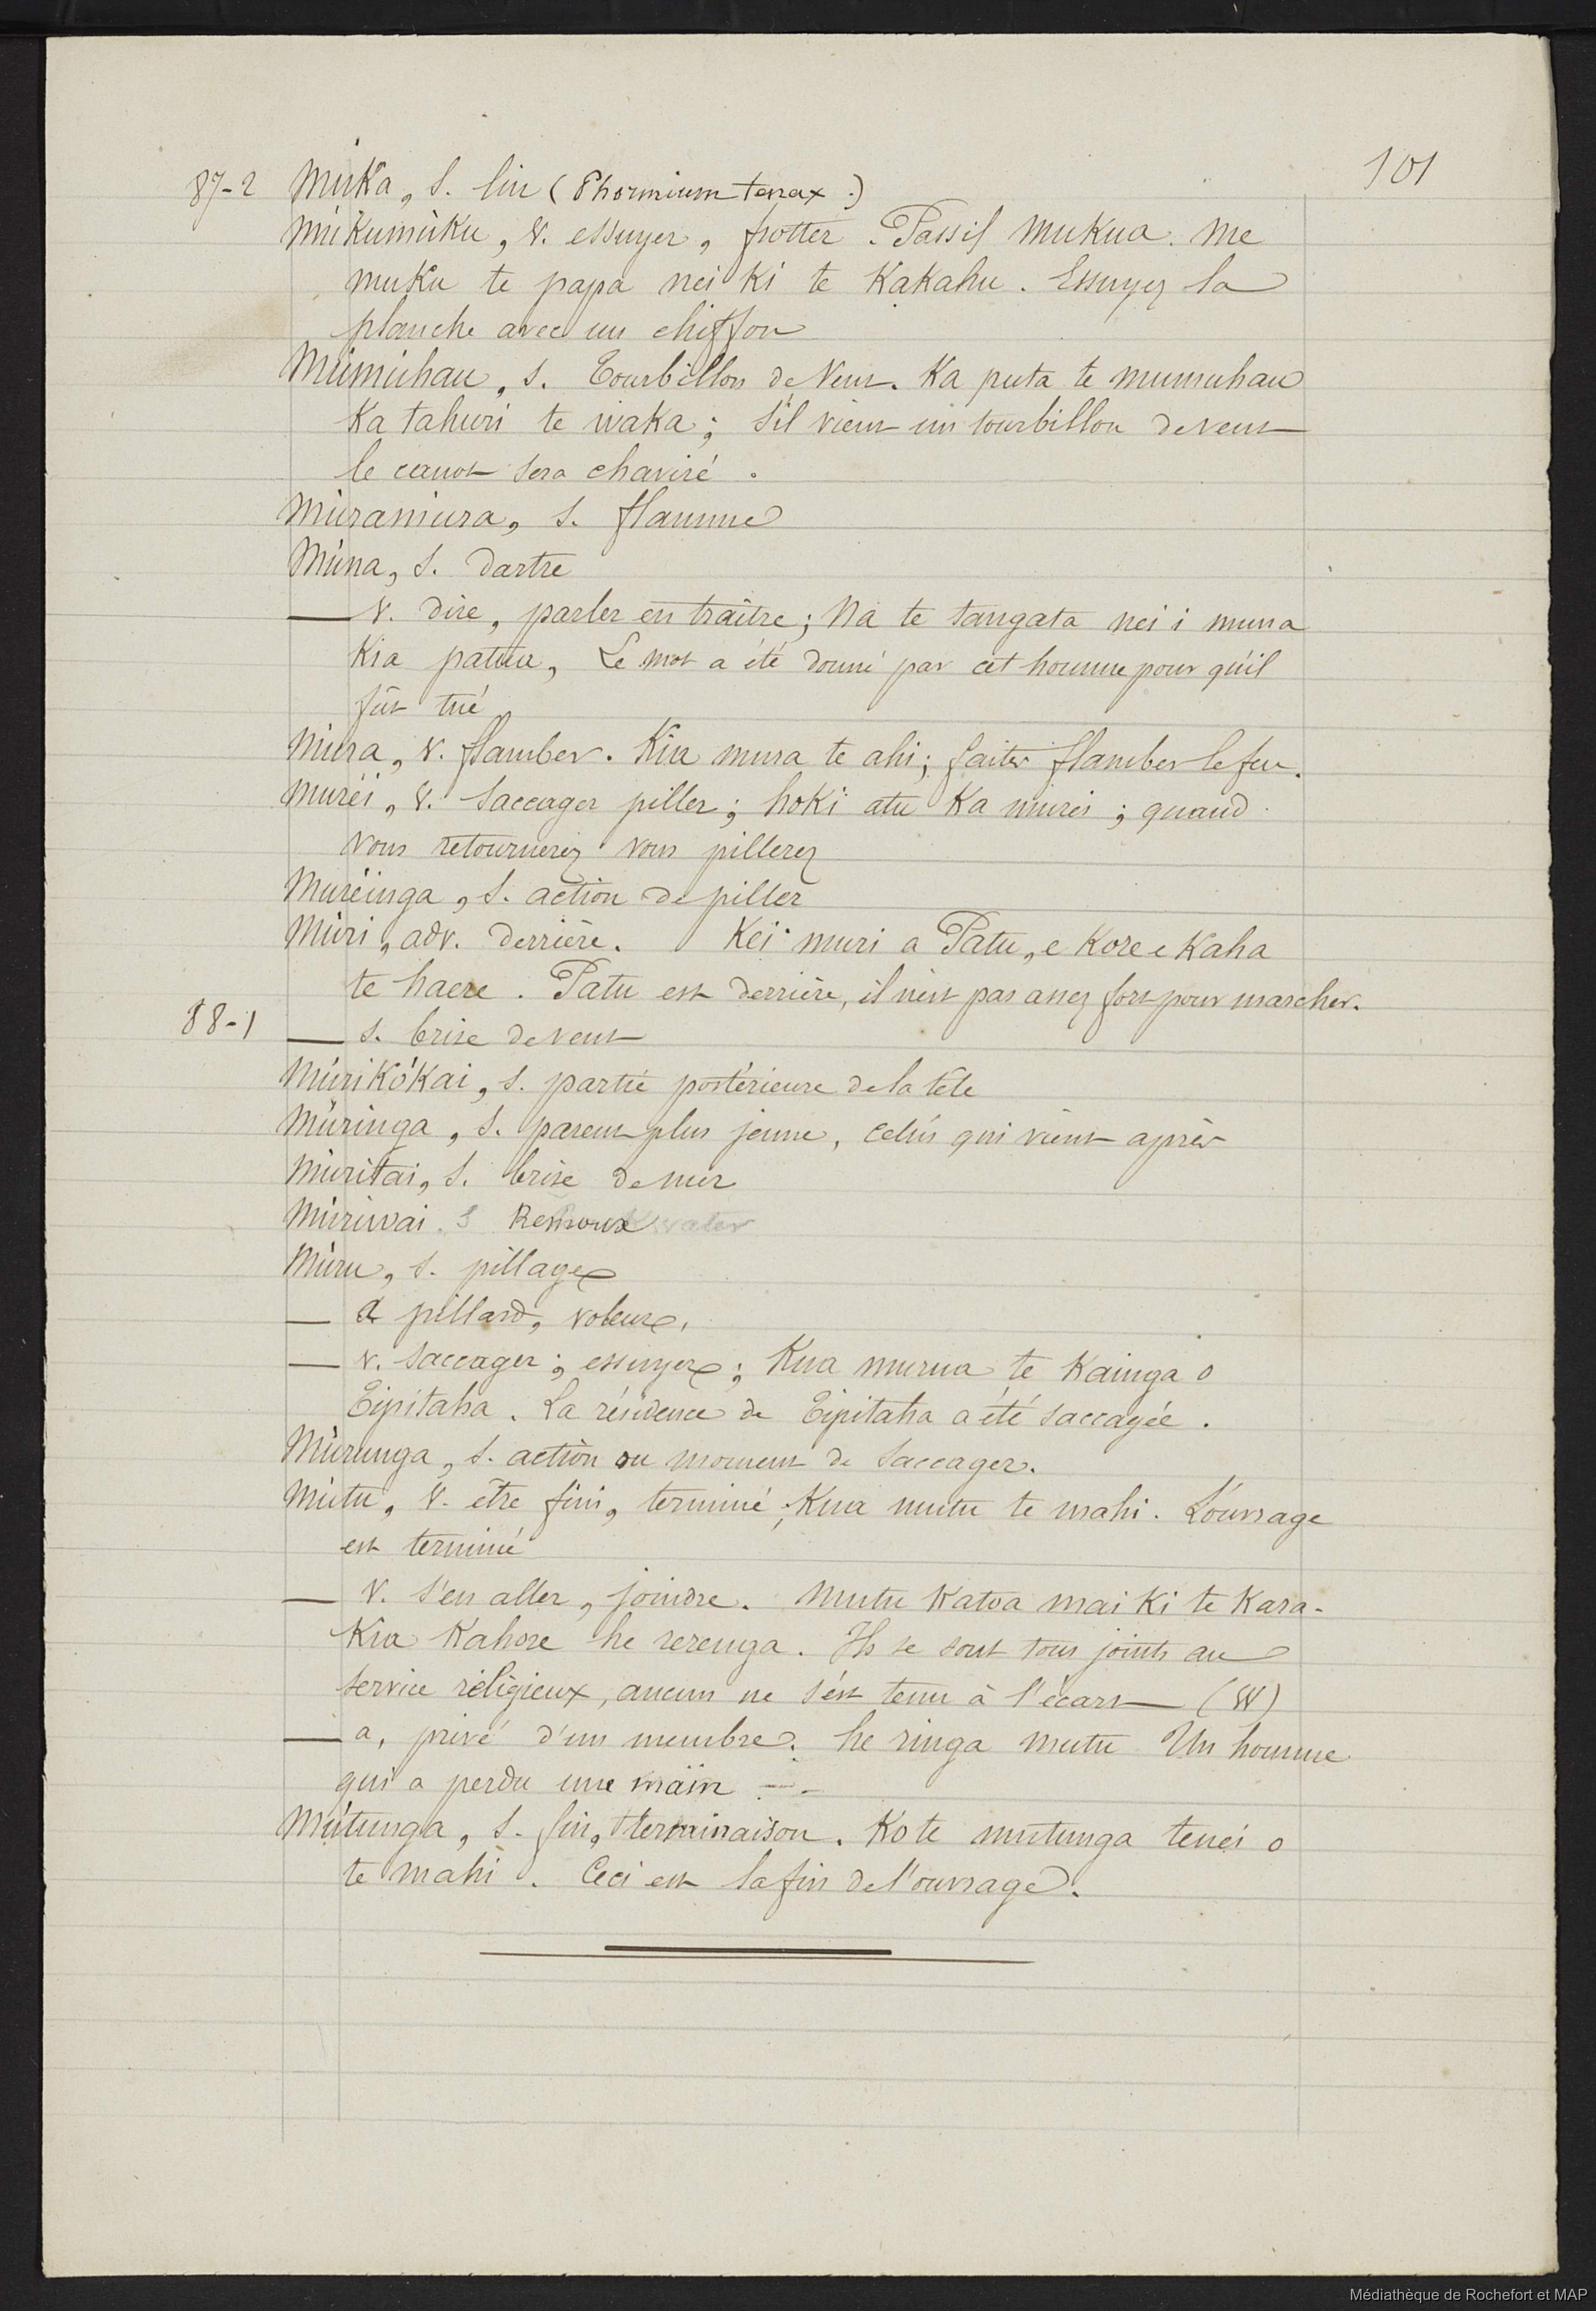 101
87-2 Múka, s. lin (Phormium tenax.)
Múkumúku, v. essuyer, frotter. Passif mukua. Me
muku te papa nei ki te Kakahu. Essuyez la
planche avec un chiffon
Múmúhau, s. Tourbillon de Vent. Ka puta te mumuhau
Ka tahuri te waka; s'il vient un tourbillon de vent
le canot sera chaviré.
Múramúra, s. flamme
Múna, s. dartre
— v. dire, parler en traître; Na te tangata nei i muna
Kia patua, Le mot a été donné par cet homme pour qu'il
fût tué
Múra, v. flamber. Kia mura te ahi; faites flamber le feu.
Muréi, v. Saccager piller; hoki atu Ka murei; quand
vous retournerez vous pillerez
Muréinga, s. action de piller
Múri, adv. derrière. Kei muri a Patu, e Kore e Kaha
te haere. Patu est derrière, il n'est pas assez fort pour marcher.
88-1 — s. brise de vent
MúriKóKai, s. partie postérieure de la tête
Múringa, s. parent plus jeune, celui qui vient après
Múritai, s. brise de mer
Múriwai. s Remoux water
Múru, s. pillage
— a pillard, voleur,
— v. saccager; essuyer; Kua murua te Kainga o
Eipitaha. La résidence de Eipitaha a été saccagée.
Múrunga, s. action ou moment de saccager.
Mútu, v. être fini, terminé; Kua mutu te mahi. L'ouvrage
est terminé
— v. s'en aller, joindre. Mutu Katoa mai Ki te Kara-
Kia Kahore he rerenga. Ils se sont tous joints au
service réligieux, aucun ne s'est tenu à l'écart — (W)
— a, privé d'un membre. he ringa mutu Un homme
qui a perdu une main —
Mútunga, s. fin, terminaison. Ko te mutunga tenei o
te mahi. Ceci est la fin de l'ouvrage.
Médiathèque de Rochefort et MAP